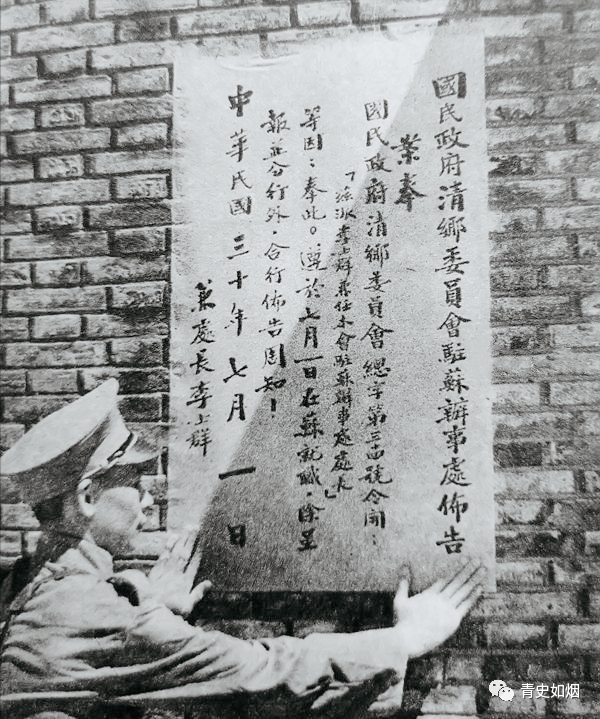 國民政府清鄉委員會駐蘇辦事處佈告
業奉
國民政府清鄉委員會總字第三四號令開：
「茲派李士群兼任本會駐蘇辦事處處長」
等因：奉此。遵於七月一日在蘇就職，除呈
報並分行外，合行佈告周知！
中華民國三十年七月一日
兼處長李士群
青史如烟